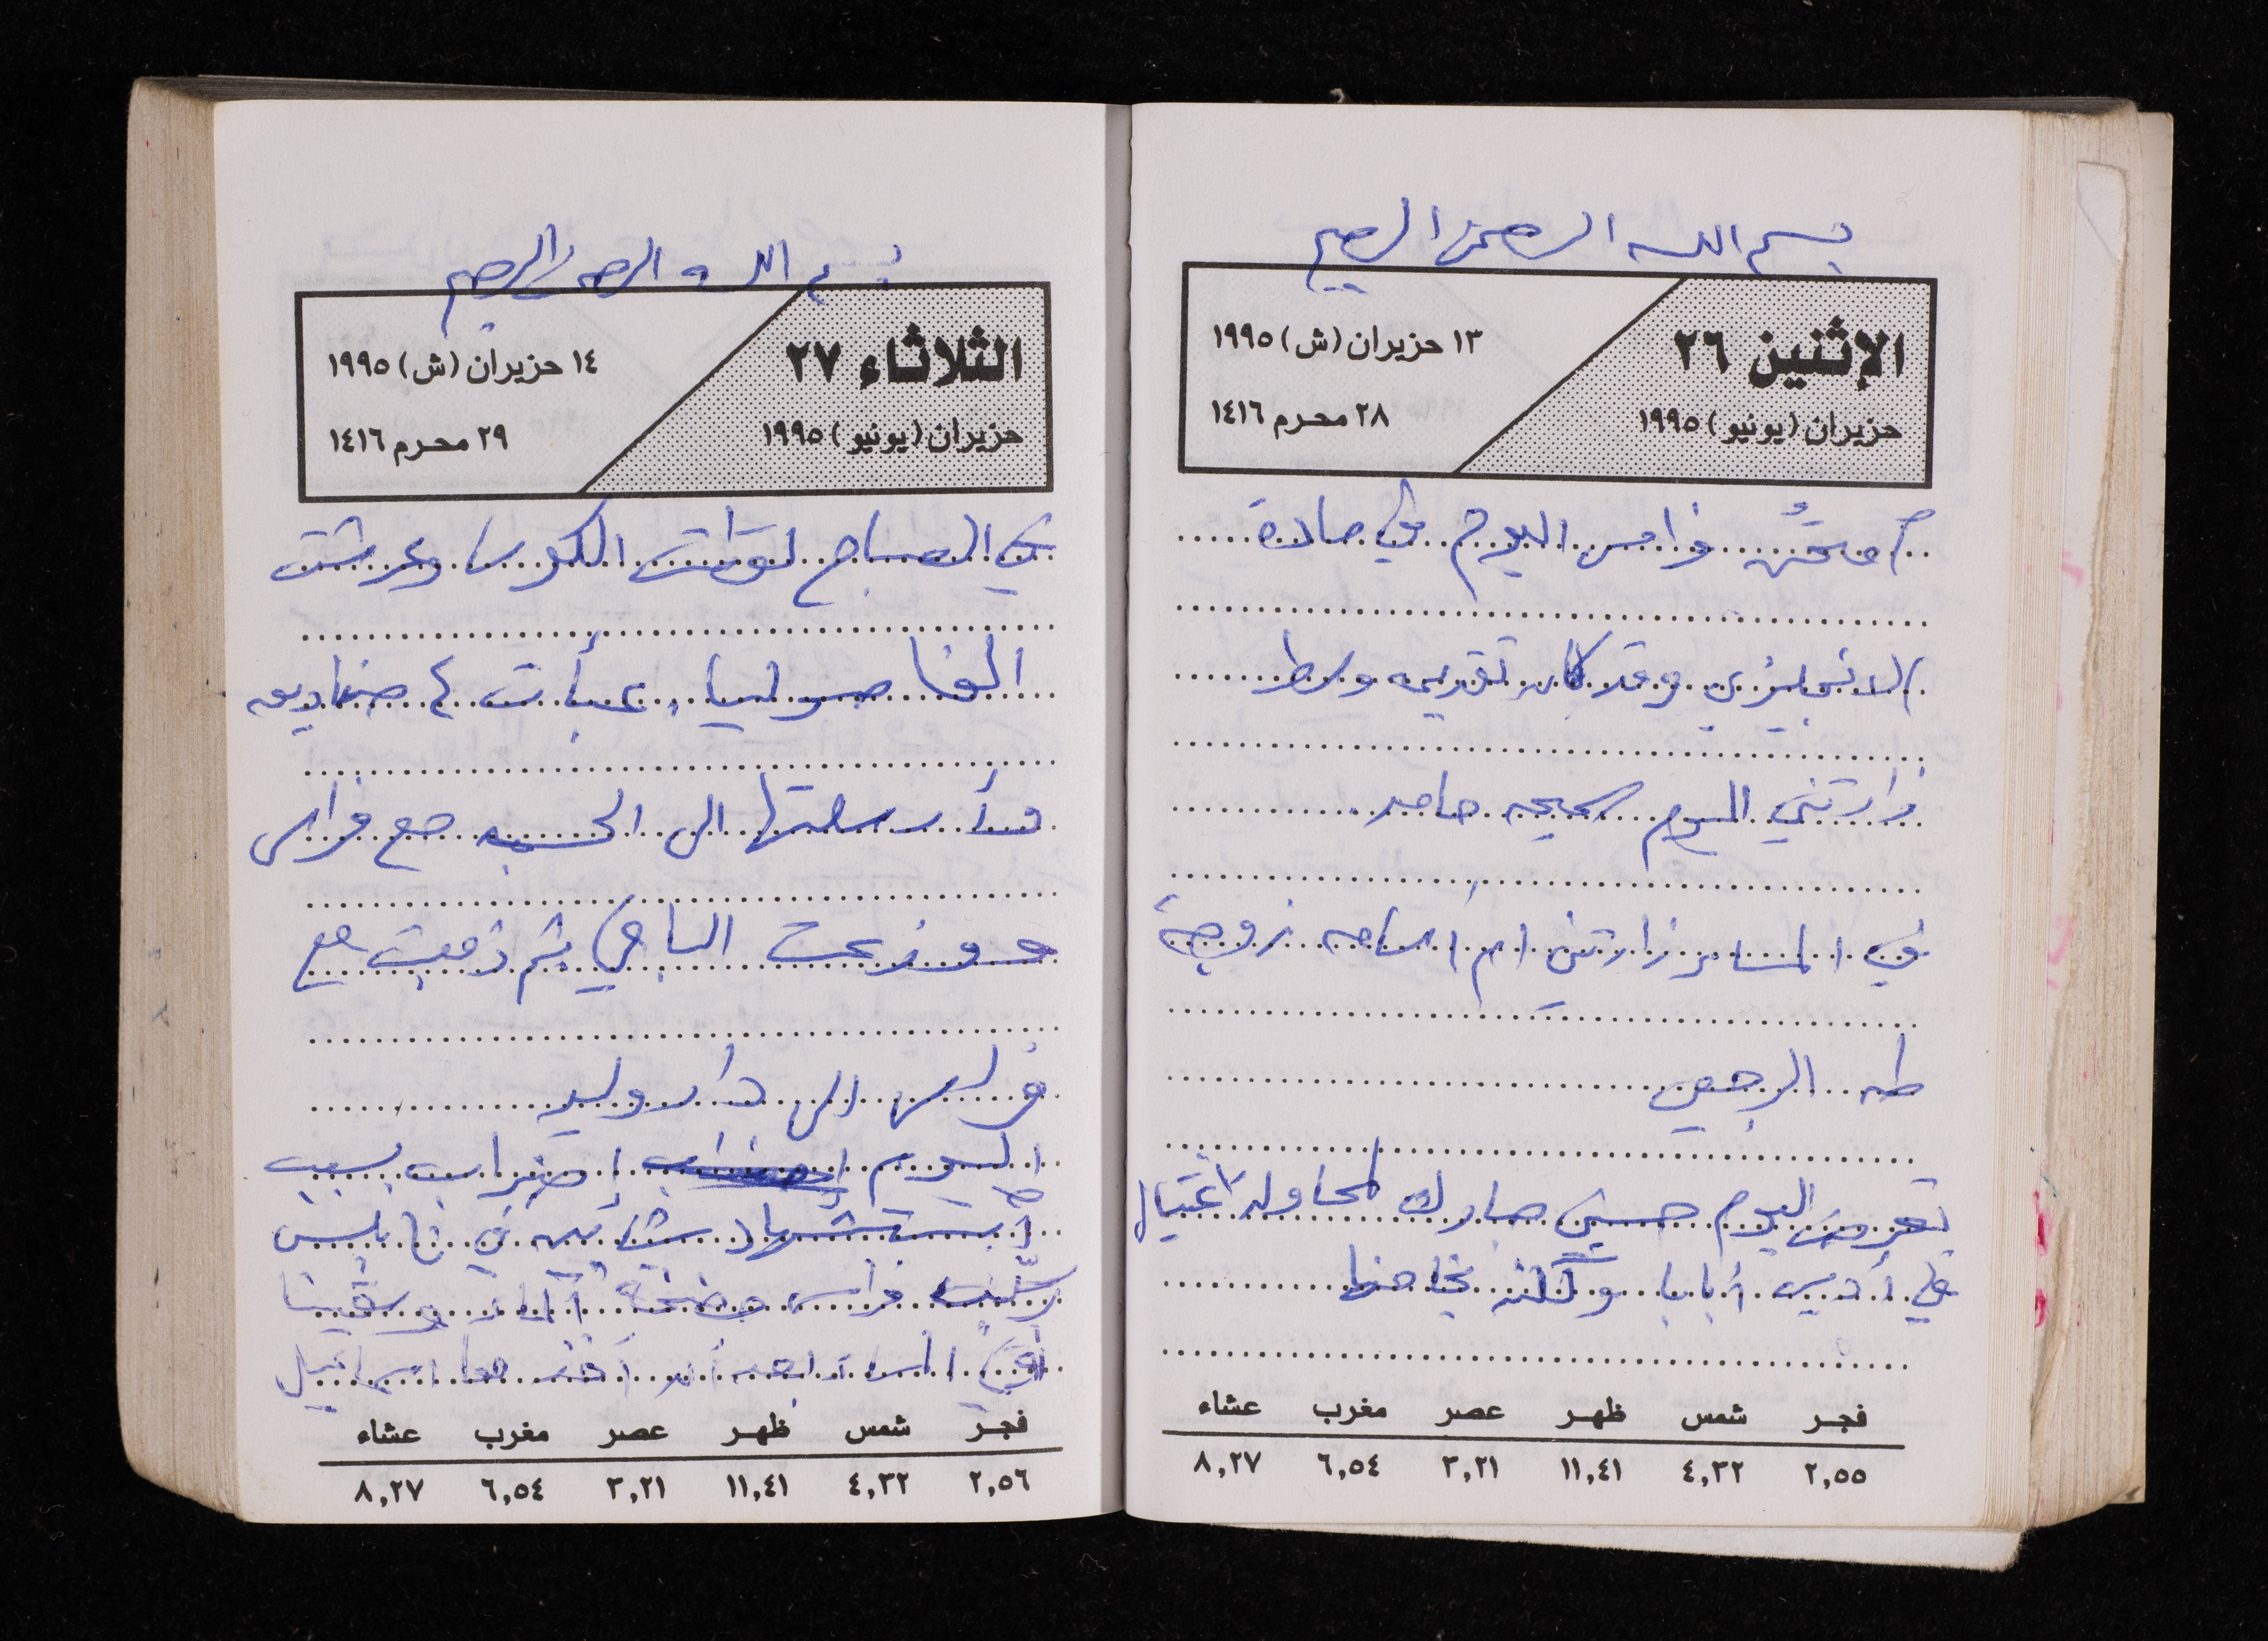 بسم الله الرحمن الرحيم
الإثنين ٢٦
حزيران (يونيو) ١٩٩٥
١٣ حزيران (ش) ١٩٩٥
٢٨ محرم ١٤١٦
فراس اليوم في مادة
الانجليزي وقد كان تقديمه وسط
زارتني اليوم سميحه حامد
في المساء زارتني ام اسامه زوجة
طه الرجعي
تعرض اليوم حسني مبارك لمحاولة اغتيال
في أديس أبابا ولكنه نجا منها
فجر شمس ظهر عصر مغرب عشاء
٢,٥٥ ٤,٣٢ ١١,٤١ ٣,٢١ ٦,٥٤ ٨,٢٧
بسم الله الرحمن الرحيم
الثلاثاء ٢٧
حزيران (يونيو) ١٩٩٥
١٤ حزيران (ش) ١٩٩٥
٢٩ محرم ١٤١٦
في الصباح لقطت الكوسا وعرشت
الفاصوليا، عبأت ٤ صناديق
وأرسلتها الى الحسبه مع فراس
ووزعت الباقي ثم ذهبت مع
فراس الى دار وليد
اليوم إضراب بسبب
إستشهاد شابين في نابلس
فراس مضخة الماء وسقينا
اسرائيل
فجر شمس ظهر عصر مغرب عشاء
٢,٥٦ ٤,٣٢ ١١,٤١ ٣,٢١ ٦,٥٤ ٨,٢٧